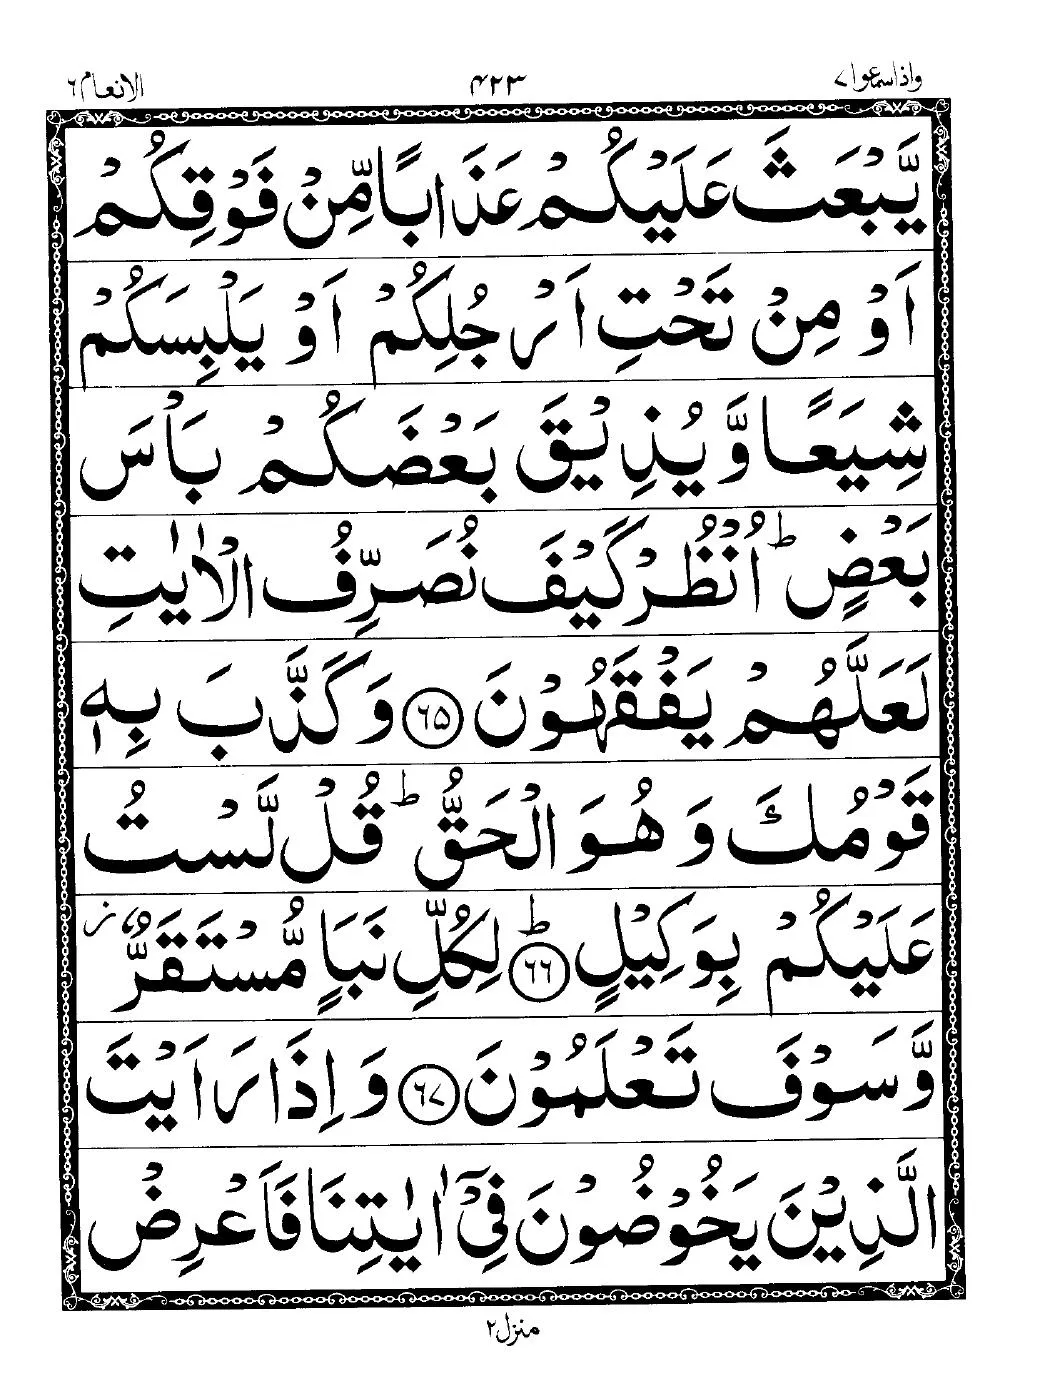 واذاسمعوا ۷ ۴۲۳ الانعام ۶
يَّبْعَثَ عَلَيْكُمْ عَذَابًا مِّنْ فَوْقِكُمْ
اَوْ مِنْ تَحْتِ اَرْجُلِكُمْ اَوْ يَلْبِسَكُمْ
شِيَعًا وَّيُذِيْقَ بَعْضَكُمْ بَاْسَ
بَعْضٍ ؕ اُنْظُرْ كَيْفَ نُصَرِّفُ الْاٰيٰتِ
لَعَلَّهُمْ يَفْقَهُوْنَ ﴿۶۵﴾ وَكَذَّبَ بِهٖ
قَوْمُكَ وَهُوَ الْحَقُّ ؕ قُلْ لَّسْتُ
عَلَيْكُمْ بِوَكِيْلٍ ؕ ﴿۶۶﴾ لِكُلِّ نَبَاٍ مُّسْتَقَرٌّ ز
وَّسَوْفَ تَعْلَمُوْنَ ﴿۶۷﴾ وَاِذَا رَاَيْتَ
الَّذِيْنَ يَخُوْضُوْنَ فِيْۤ اٰيٰتِنَا فَاَعْرِضْ
منزل ۲